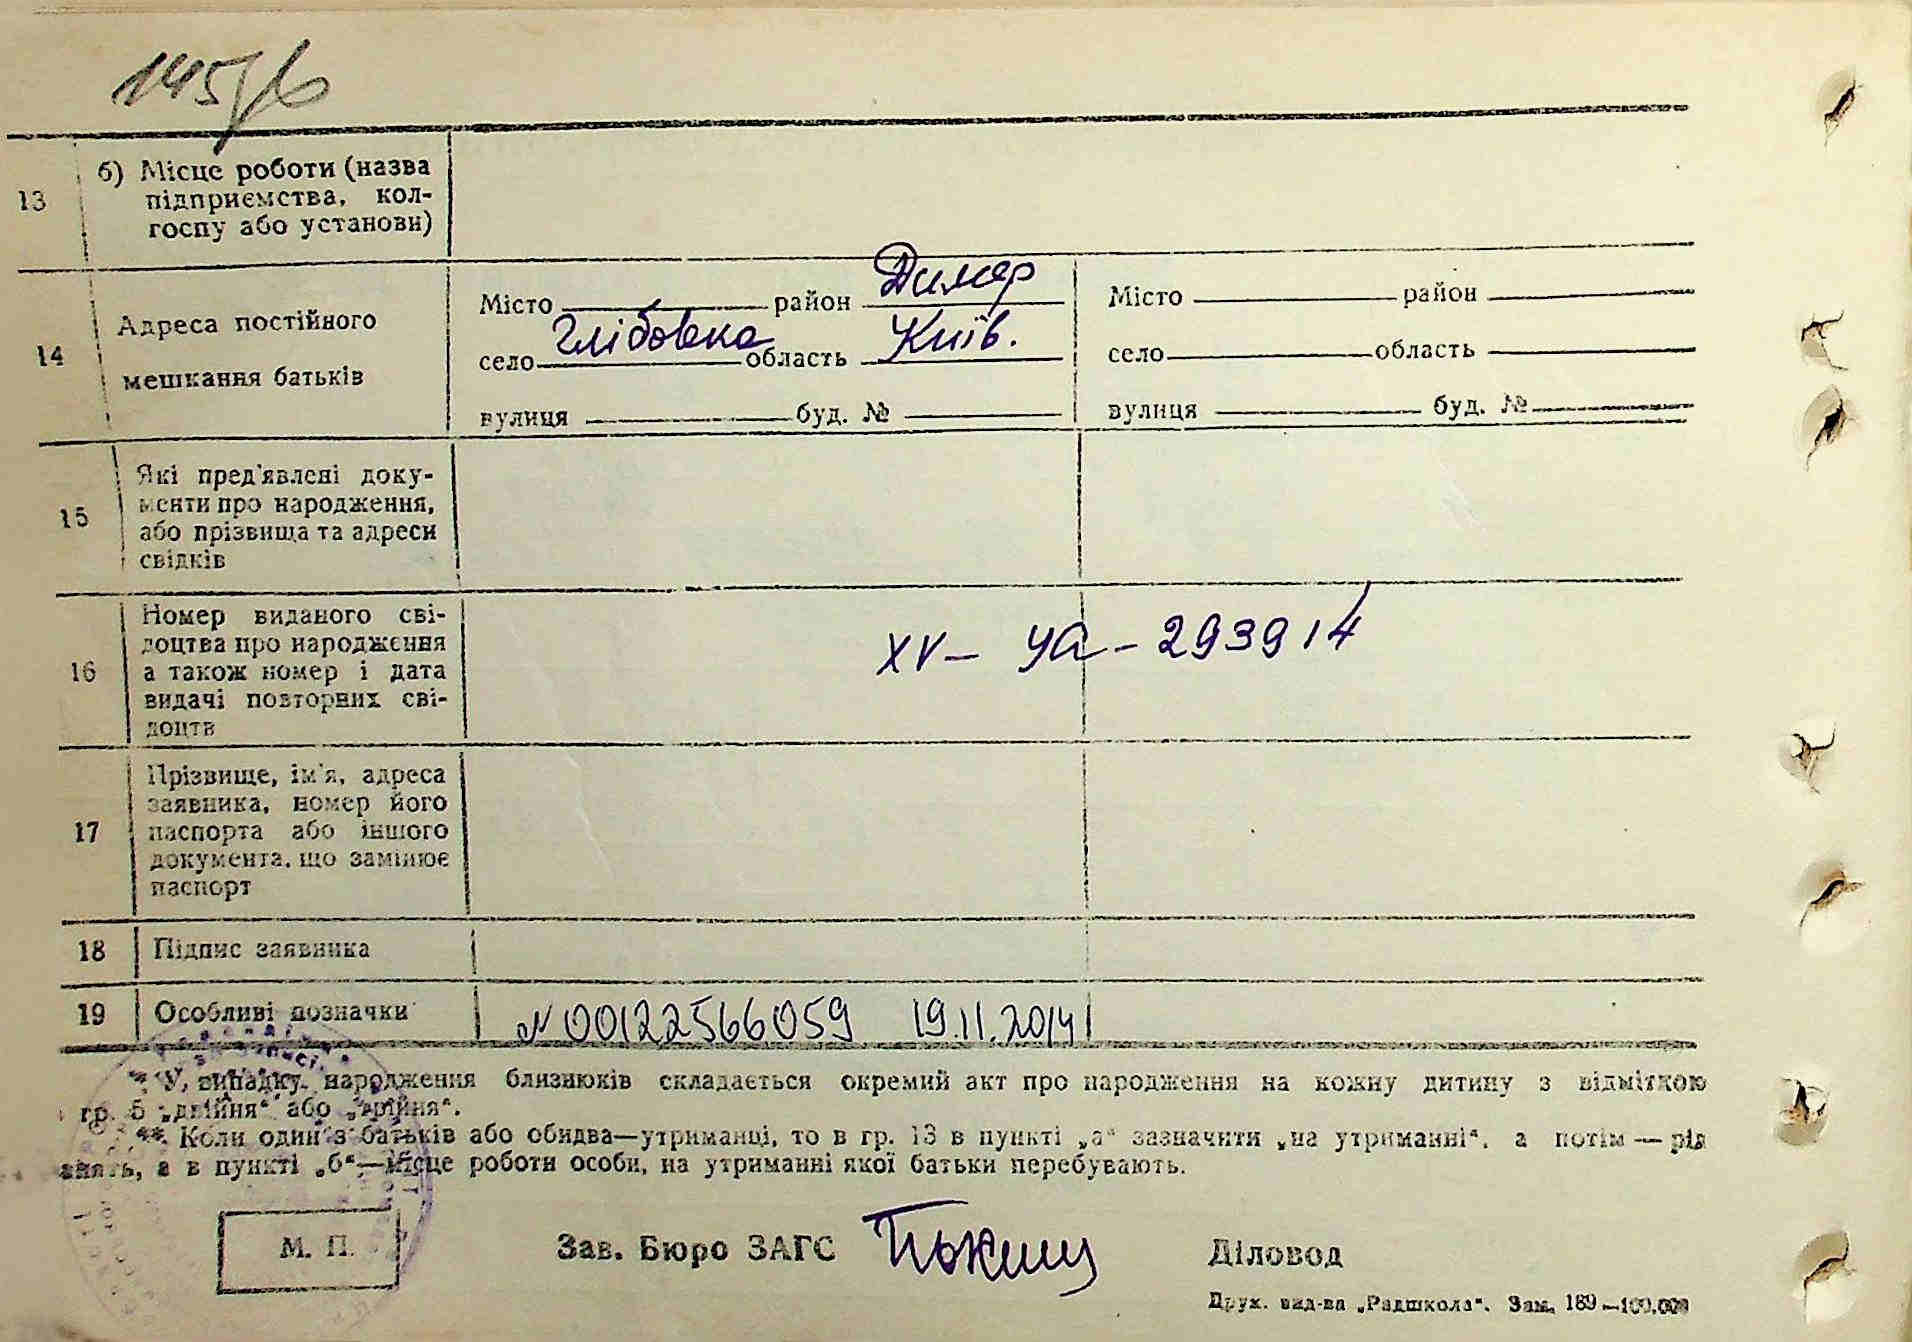 13
б) Місце роботи (назва
підприємства, кол-
госпу або установи)
14
Адреса постійного
мешкання батьків
Місто район Димер
село Глібовка область Київ.
вулиця буд. №
Місто район
село область
вулиця буд. №
15
Які пред'явлені доку-
менти про народження,
або прізвища та адреси
свідків
16
Номер виданого сві-
доцтва про народження
а також номер і дата
видачі повторних сві-
доцтв
XV- УА - 293914
17
Прізвище, ім'я, адреса
заявника, номер його
паспорта або іншого
документа, що замінює
паспорт
18 Підпис заявника
19 Особливі позначки N 00122566059 19.11.2014
* У випадку народження близнюків складається окремий акт про народження на кожну дитину з відміткою
гр. 5 „двійня“ або „трійня“.
** Коли один з батьків або обидва—утриманці, то в гр. 13 в пункті „а“ зазначити „на утриманні“, а потім —
а в пункті „б“—місце роботи особи, на утриманні якої батьки перебувають.
М. П.
Зав. Бюро ЗАГС
Діловод
Друк. вид-ва „Радшкола“. Зам. 189—100.000